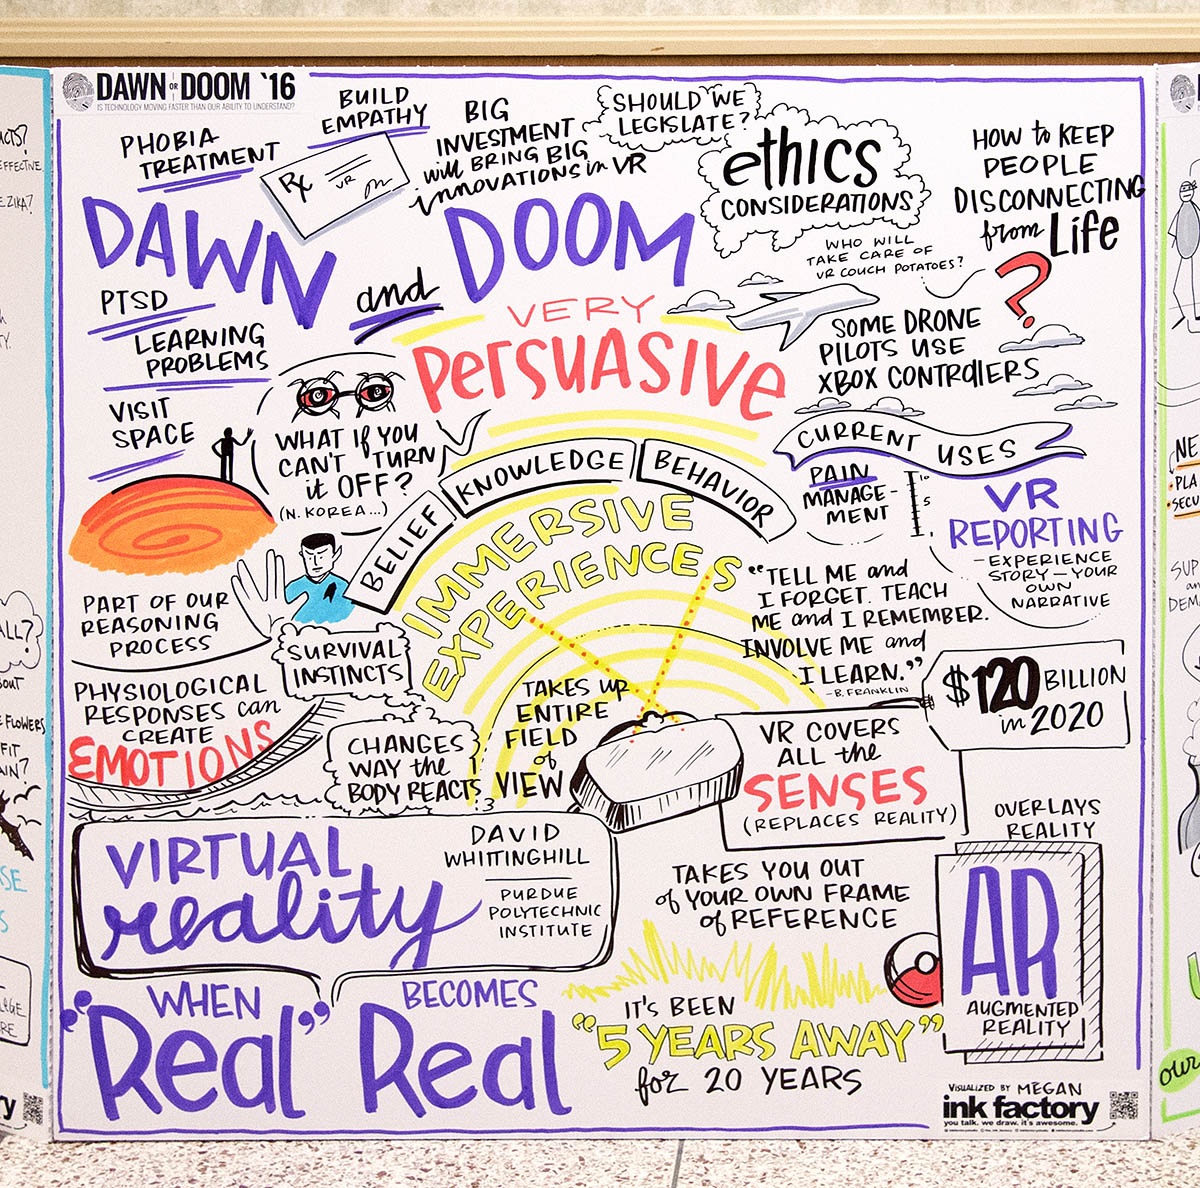 DAWN OR DOOM '16
IS TECHNOLOGY MOVING FASTER THAN OUR ABILITY TO UNDERSTAND?
PHOBIA
TREATMENT
BUILD
EMPATHY
Rx
VR
BIG
INVESTMENT
will BRING BIG
innovations in VR
SHOULD WE
LEGISLATE?
ethics
CONSIDERATIONS
HOW to KEEP
PEOPLE
DISCONNECTING
from Life
?
WHO WILL
TAKE CARE OF
VR COUCH POTATOES?
DAWN
and
DOOM
PTSD
LEARNING
PROBLEMS
VISIT
SPACE
VERY
PERSUASIVE
SOME DRONE
PILOTS USE
XBOX CONTROllERS
WHAT if YOU
CAN'T TURN
it OFF?
(N. KOREA...)
BELIEF
KNOWLEDGE
BEHAVIOR
IMMERSIVE
EXPERIENCES
CURRENT USES
PAIN
MANAGE-
MENT
10
5
1
VR
REPORTING
- EXPERIENCE
STORY - YOUR
OWN
NARRATIVE
"TELL ME and
I FORGET. TEACH
ME and I REMEMBER.
INVOLVE ME and
I LEARN."
- B. FRANKLIN
PART OF OUR
REASONING
PROCESS
SURVIVAL
INSTINCTS
PHYSIOLOGICAL
RESPONSES can
CREATE
EMOTIONS
CHANGES
WAY the
BODY REACTS
TAKES UP
ENTIRE
FIELD
of
VIEW
VR COVERS
ALL the
SENSES
(REPLACES REALITY)
$120 BILLION
in 2020
OVERLAYS
REALITY
AR
AUGMENTED
REALITY
VIRTUAL
reality
DAVID
WHITTINGHILL
PURDUE
POLYTECHNIC
INSTITUTE
TAKES YOU OUT
of YOUR OWN FRAME
of REFERENCE
WHEN
"Real"
BECOMES
Real
IT'S BEEN
"5 YEARS AWAY"
for 20 YEARS
VISUALIZED BY MEGAN
ink factory
you talk. we draw. it's awesome.
EFFECTIVE
ZIKA?
ALL?
FLOWERS
our